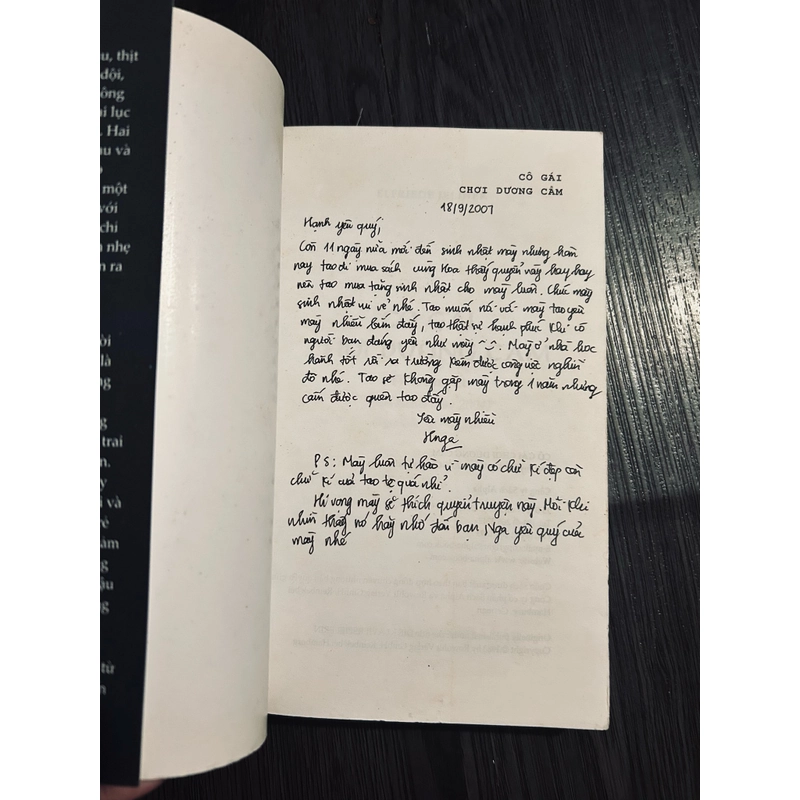 u, thịt
đội,
ông
i lục
. Hai
u và
một
với
chi
n nhẹ
m ra
ời
là
g
trai
n.
y
i và
ẻ
ảm
g
ậu
ng
từ
n
CÔ GÁI
CHƠI DƯƠNG CẦM
18/9/2007
Hạnh yêu quý,
Còn 11 ngày nữa mới đến sinh nhật mày nhưng hôm
nay tao đi mua sách cùng Hoa thấy quyển này hay hay
nên tao mua tặng sinh nhật cho mày luôn. Chúc mày
sinh nhật vui vẻ nhé. Tao muốn nói với mày tao yêu
mày nhiều lắm đấy, tao thật sự hạnh phúc khi có
người bạn đáng yêu như mày ^^. Mày ở nhà học
hành tốt rồi ra trường kiếm được công việc nghìn
đô nhé. Tao sẽ không gặp mày trong 1 năm nhưng
cấm được quên tao đấy.
Yêu mày nhiều
Hnga
PS: Mày luôn tự hào vì mày có chữ kí đẹp còn
chữ kí của tao tệ quá nhỉ.
Hi vọng mày sẽ thích quyển truyện này. Mỗi khi
nhìn thấy nó hãy nhớ đến bạn Nga yêu quý của
mày nhé